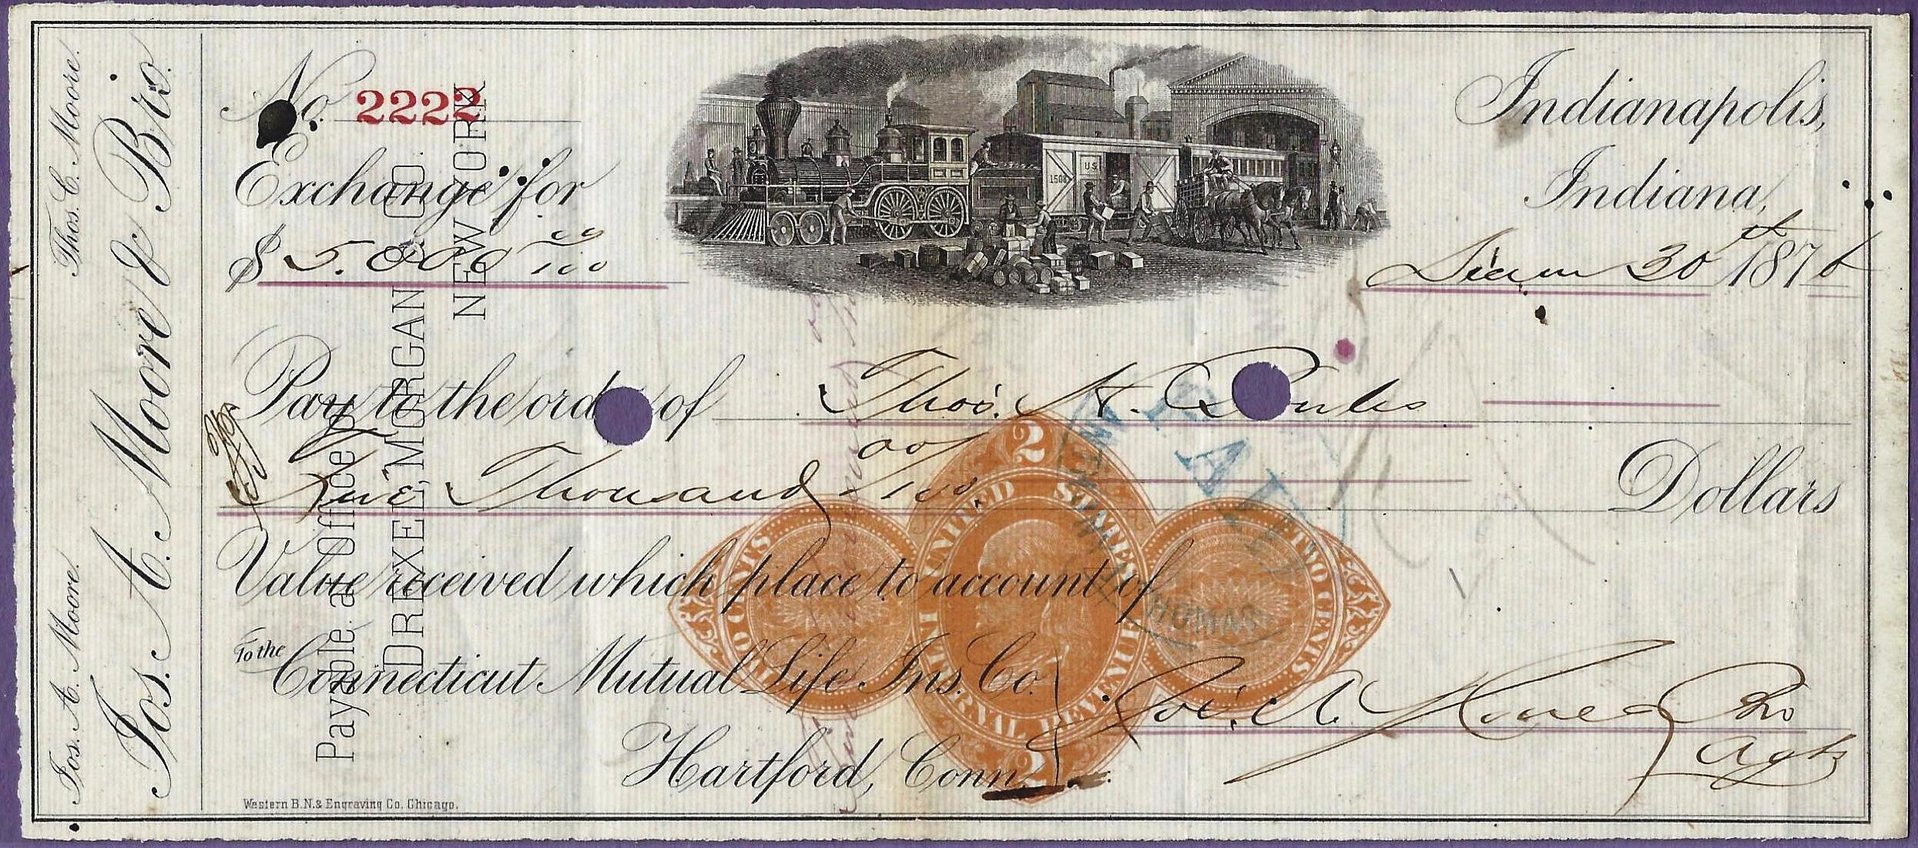 Thos. C. Moore.
Jos. A. Moore & Bro.
Jos. A. Moore.
No. 2222
Exchange for
$ 5.000 00/100
1508
U.S.
Indianapolis,
Indiana,
30th 1876
Pay to the order of Thos. H.
Five Thousand 00/100 Dollars
Value received which place to account of
To the Connecticut Mutual Life Ins. Co.
Hartford, Conn.
Jos. A. Moore & Bro
Agts
Payable at Office of
DREXEL, MORGAN & CO.
NEW YORK
2
UNITED STATES
INTERNAL REVENUE
TWO CENTS
TWO CENTS
2
PAID
THOMAS
Western B.N. & Engraving Co. Chicago.